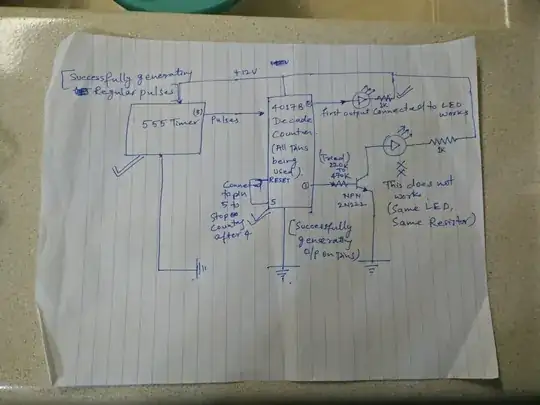 [Successfully generating
Regular pulses
+12V
555 Timer
(3)
Pulses
4017B
Decade
Counter
(All pins
being
used)
RESET
5
Connected
to pin
5 to
stop
counting
after 4
1K
First output connected to LED
works
(Tried)
220Ω
TO
470K
NPN
2N222
1K
This does not
work
(Same LED,
Same Resistor)
[Successfully
generating
O/P on pins)